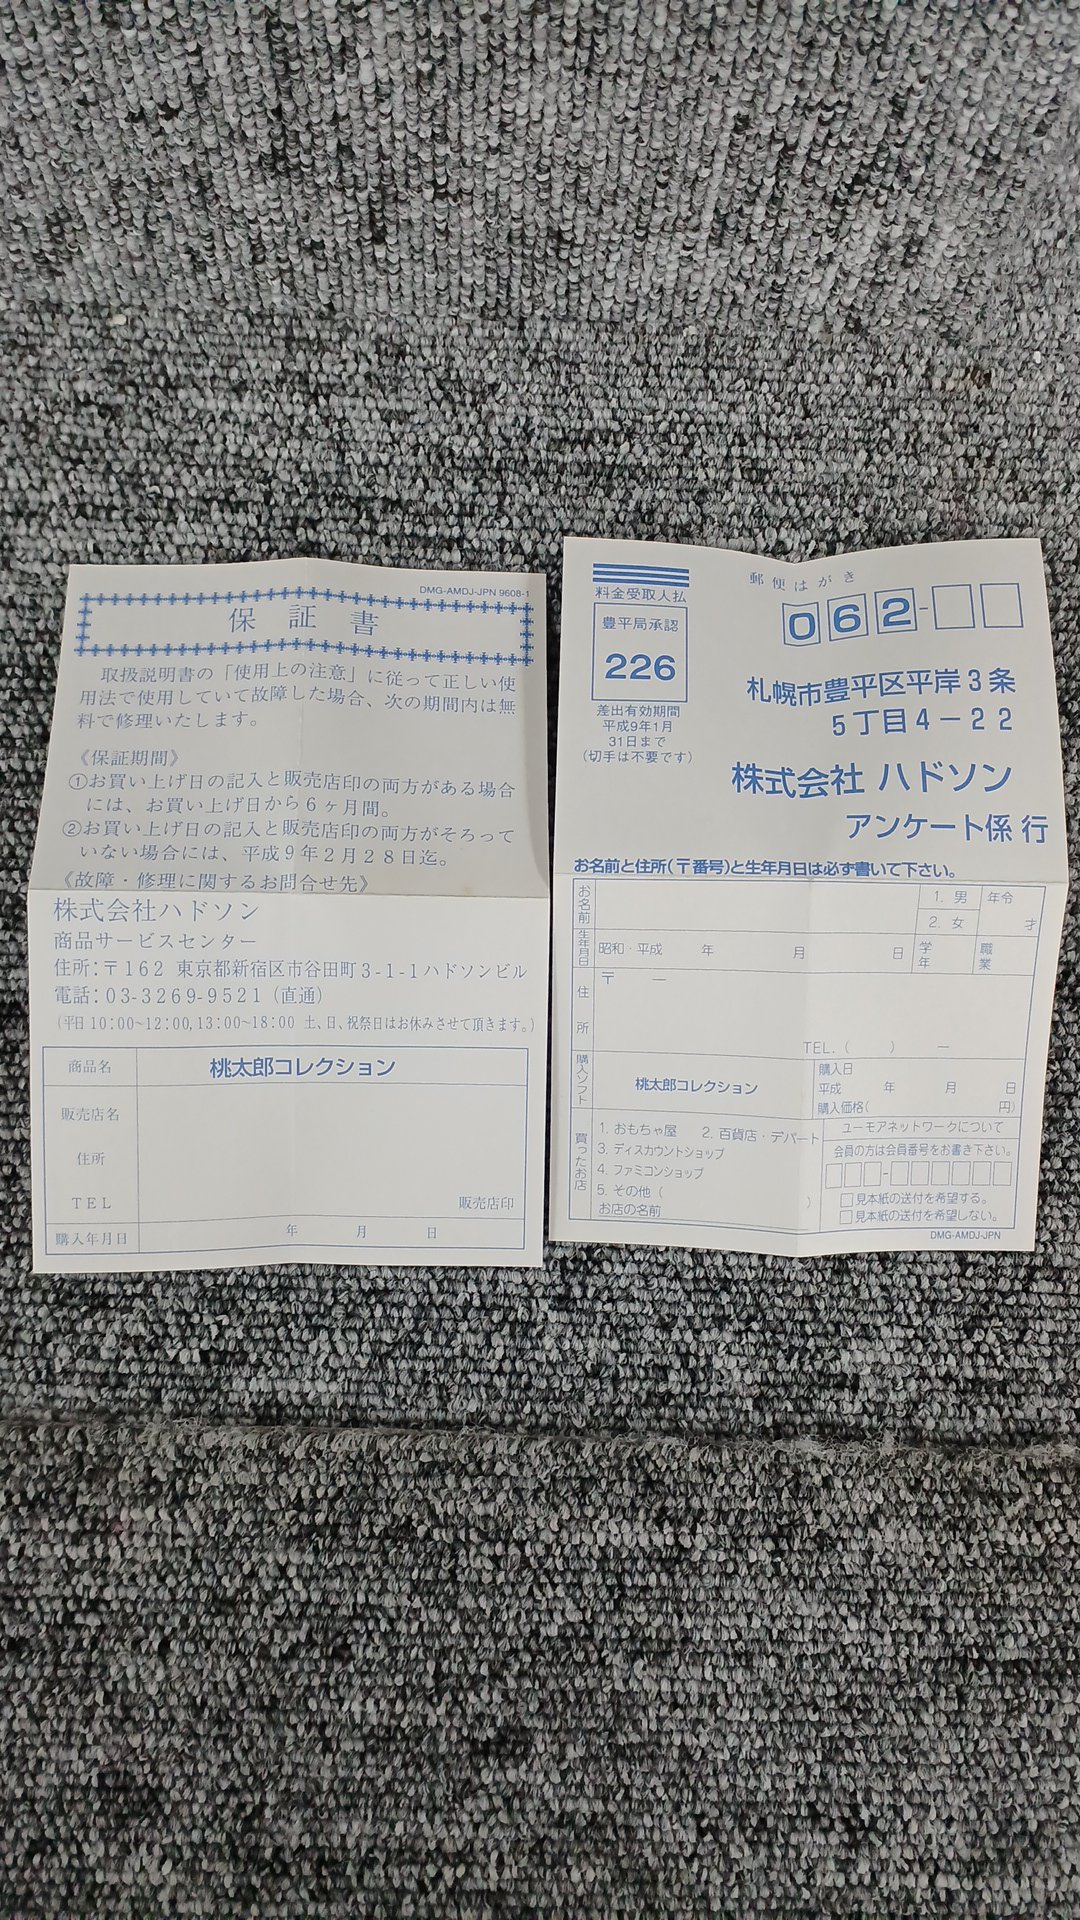 DMG-AMDJ-JPN 9608-1
保証書
取扱説明書の「使用上の注意」に従って正しい使
用法で使用していて故障した場合、次の期間内は無
料で修理いたします。
《保証期間》
①お買い上げ日の記入と販売店印の両方がある場合
には、お買い上げ日から6ヶ月間。
②お買い上げ日の記入と販売店印の両方がそろって
いない場合には、平成9年2月28日迄。
《故障・修理に関するお問合せ先》
株式会社ハドソン
商品サービスセンター
住所:〒162 東京都新宿区市谷田町3-1-1ハドソンビル
電話:03-3269-9521(直通)
(平日10:00~12:00,13:00~18:00 土、日、祝祭日はお休みさせて頂きます。)
商品名 桃太郎コレクション
販売店名
住所
TEL 販売店印
購入年月日 年 月 日
郵便はがき
料金受取人払
豊平局承認
226
差出有効期間
平成9年1月
31日まで
(切手は不要です)
062-
札幌市豊平区平岸3条
5丁目4-22
株式会社 ハドソン
アンケート係 行
お名前と住所(〒番号)と生年月日は必ず書いて下さい。
お名前 1. 男 年令
2. 女 才
生年月日 昭和・平成 年 月 日 学年 職業
住所 〒 ー
TEL. ( ) ー
購入ソフト 桃太郎コレクション
購入日
平成 年 月 日
購入価格( 円)
買ったお店
1. おもちゃ屋 2. 百貨店・デパート
3. ディスカウントショップ
4. ファミコンショップ
5. その他( )
お店の名前
ユーモアネットワークについて
会員の方は会員番号をお書き下さい。
□□□-□□□□□□
□見本紙の送付を希望する。
□見本紙の送付を希望しない。
DMG-AMDJ-JPN